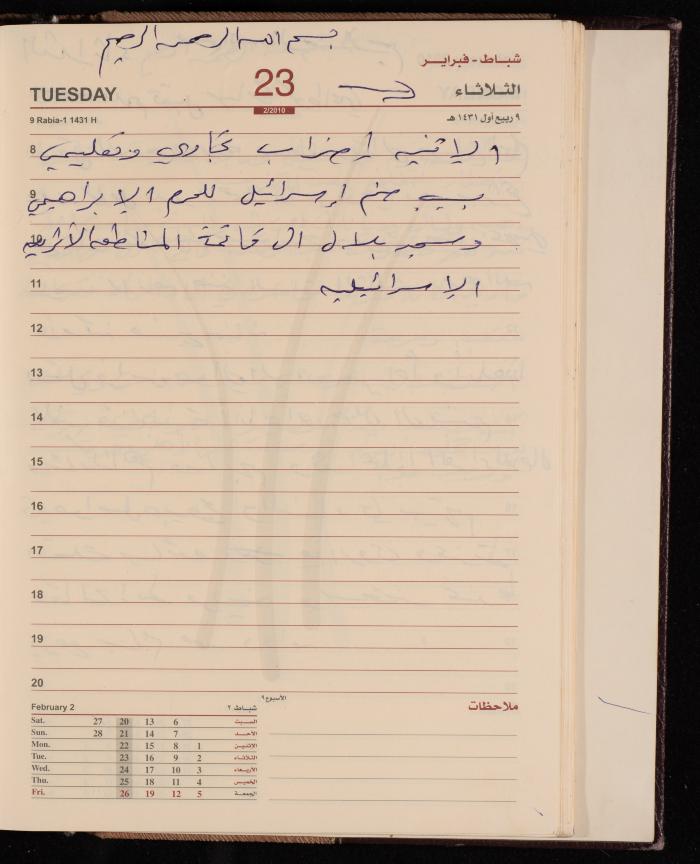 بسم الله الرحمن الرحيم
شباط - فبراير
TUESDAY 23 الثلاثاء
2/2010
9 Rabia-1 1431 H ٩ ربيع أول ١٤٣١ هـ
8 الإثنين إضراب تجاري وتعليمي
9 بسبب ضم إسرائيل للحرم الإبراهيمي
10 ومسجد بلال الى قائمة المناطق الأثرية
11 الإسرائيلية
12
13
14
15
16
17
18
19
20
February 2 شباط ٢
الأسبوع ٩
ملاحظات
Sat. 27 20 13 6 السبت
Sun. 28 21 14 7 الأحد
Mon. 22 15 8 1 الاثنين
Tue. 23 16 9 2 الثلاثاء
Wed. 24 17 10 3 الأربعاء
Thu. 25 18 11 4 الخميس
Fri. 26 19 12 5 الجمعة